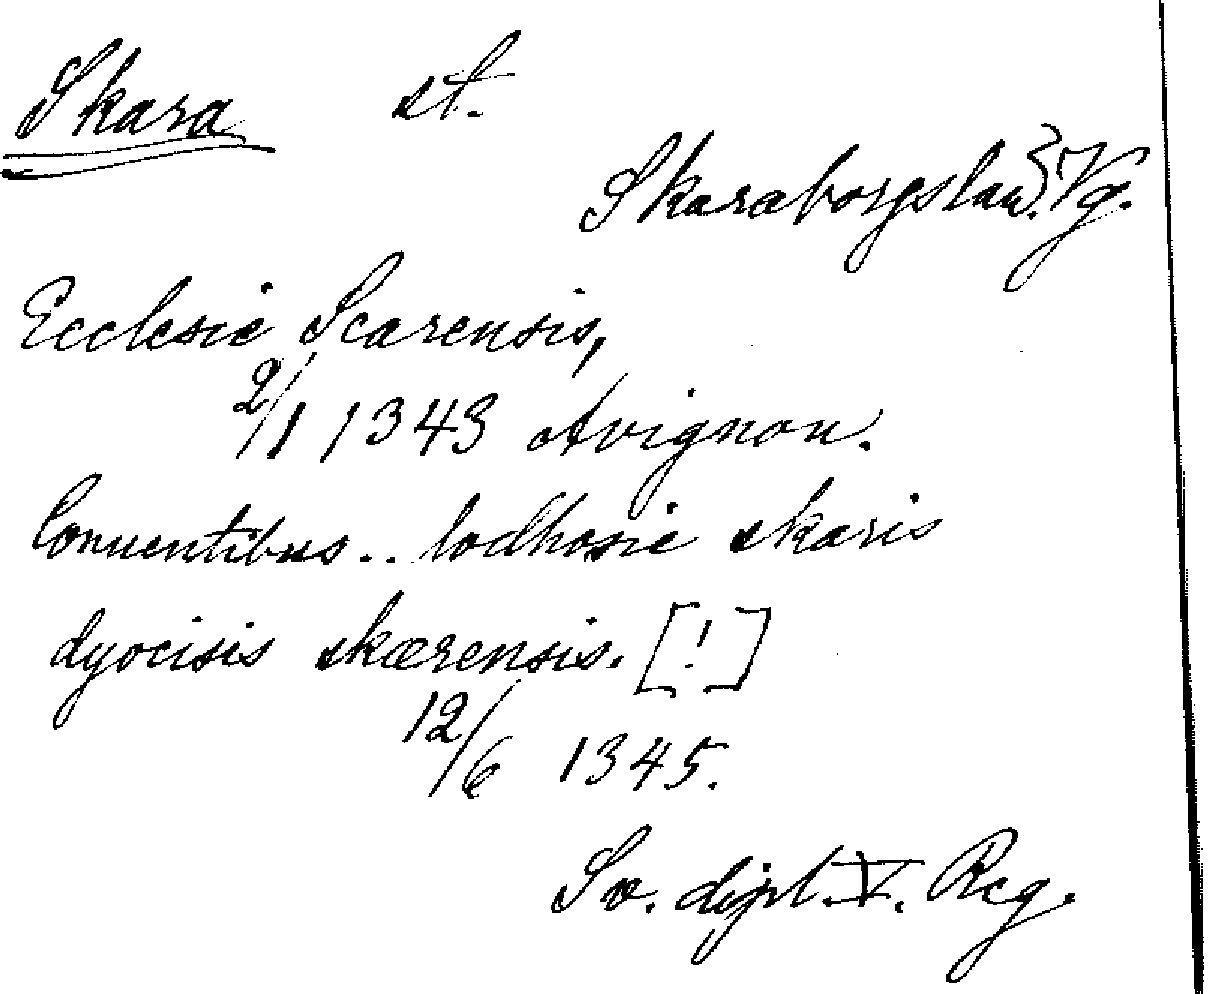 Skara st.
Skaraborgslän. Vg.
Ecclesie Scarensis,
2/1 1343 Avignon.
Conuentibus.. lodhosie skaris
dyocisis skærensis. [!]
12/6 1345.
Sv. dipl. V. Reg.